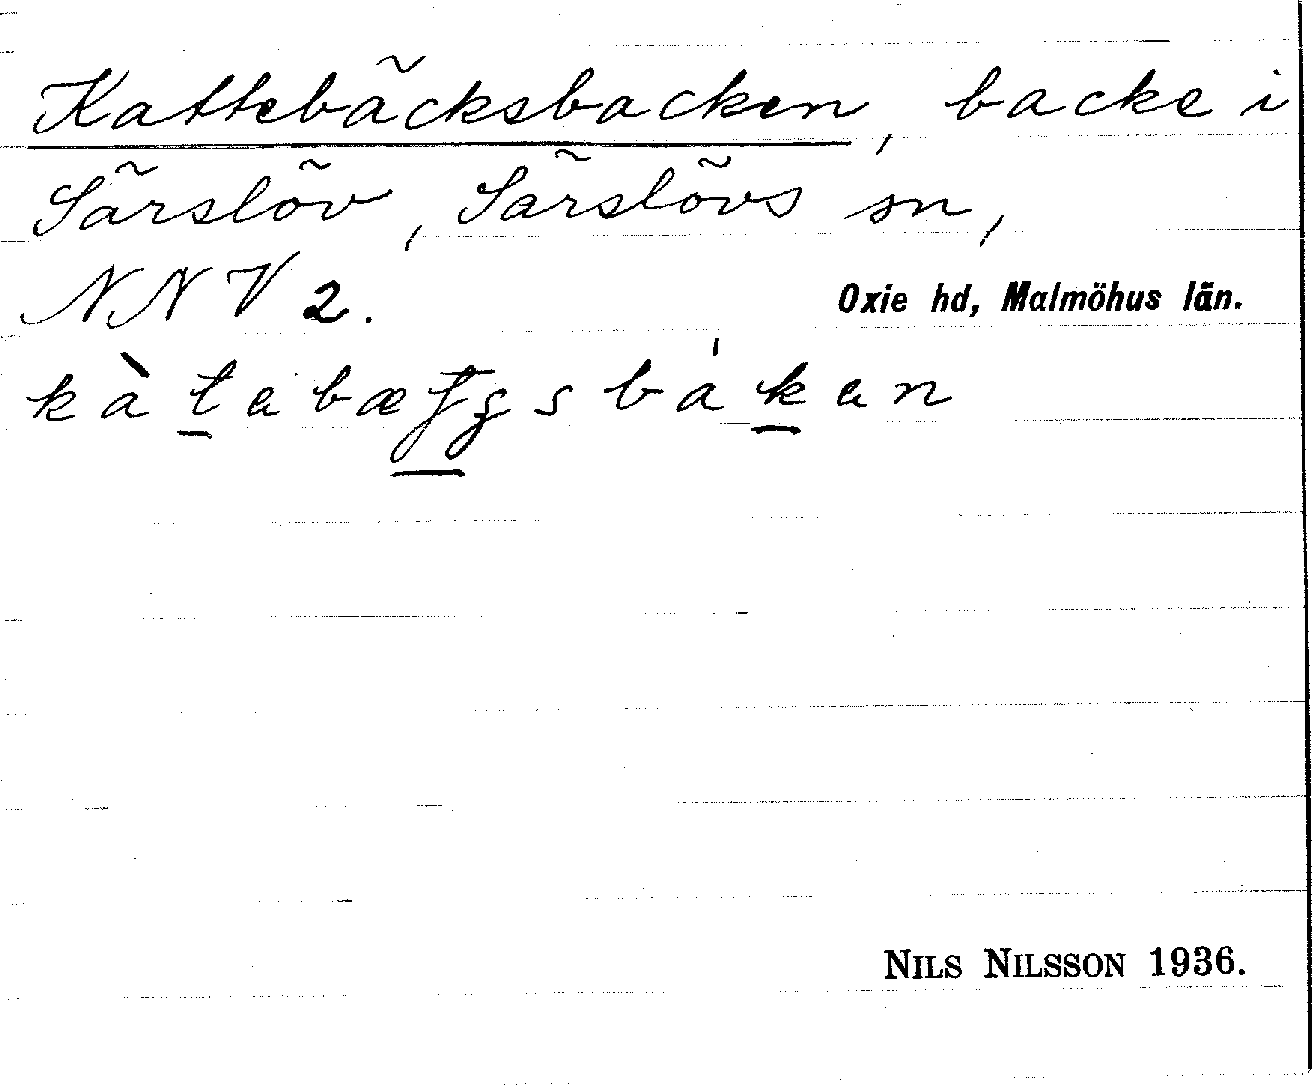 Kattebäcksbacken, backe i
Särslöv, Särslövs sn,
NNV 2.
Oxie hd, Malmöhus län.
kàtabæʃgsbákan
NILS NILSSON 1936.